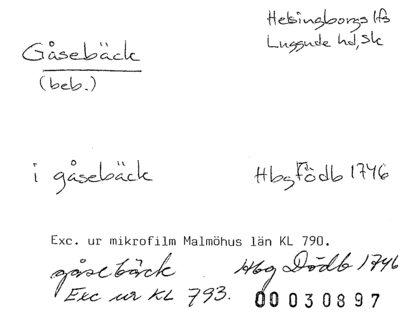 Gåsebäck
(beb.)
Helsingborgs lfs
Luggude hd, Sk
i gåsebäck
Hbg Födb 1746
Exc. ur mikrofilm Malmöhus län KL 790.
gåsebäck Hbg Dödb 1746
Exc ur KL 793.
00030897